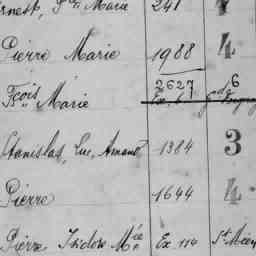 Marie 241
Pierre Marie 1988 4
Fçois Marie 2627 6
Stanislas, Luc, Amand 1384 3
Pierre 1644 4
Pierre Isidore Mie Ex 114 St